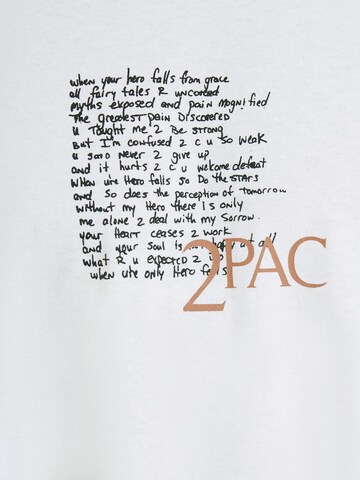 when your hero falls from grace
all fairy tales R uncovered
myths exposed and pain magnified
The greatest pain Discovered
u Taught me 2 Be strong
But I'm confused 2 c u so weak
u said never 2 give up
and it hurts 2 c u welcome defeat
When ure Hero falls so Do the STARS
and so does the perception of tomorrow
without my Hero there is only
me alone 2 deal with my sorrow.
your Heart ceases 2 work
and your soul is not happy at all
what R u expected 2 Do
when ure only Hero falls
2PAC